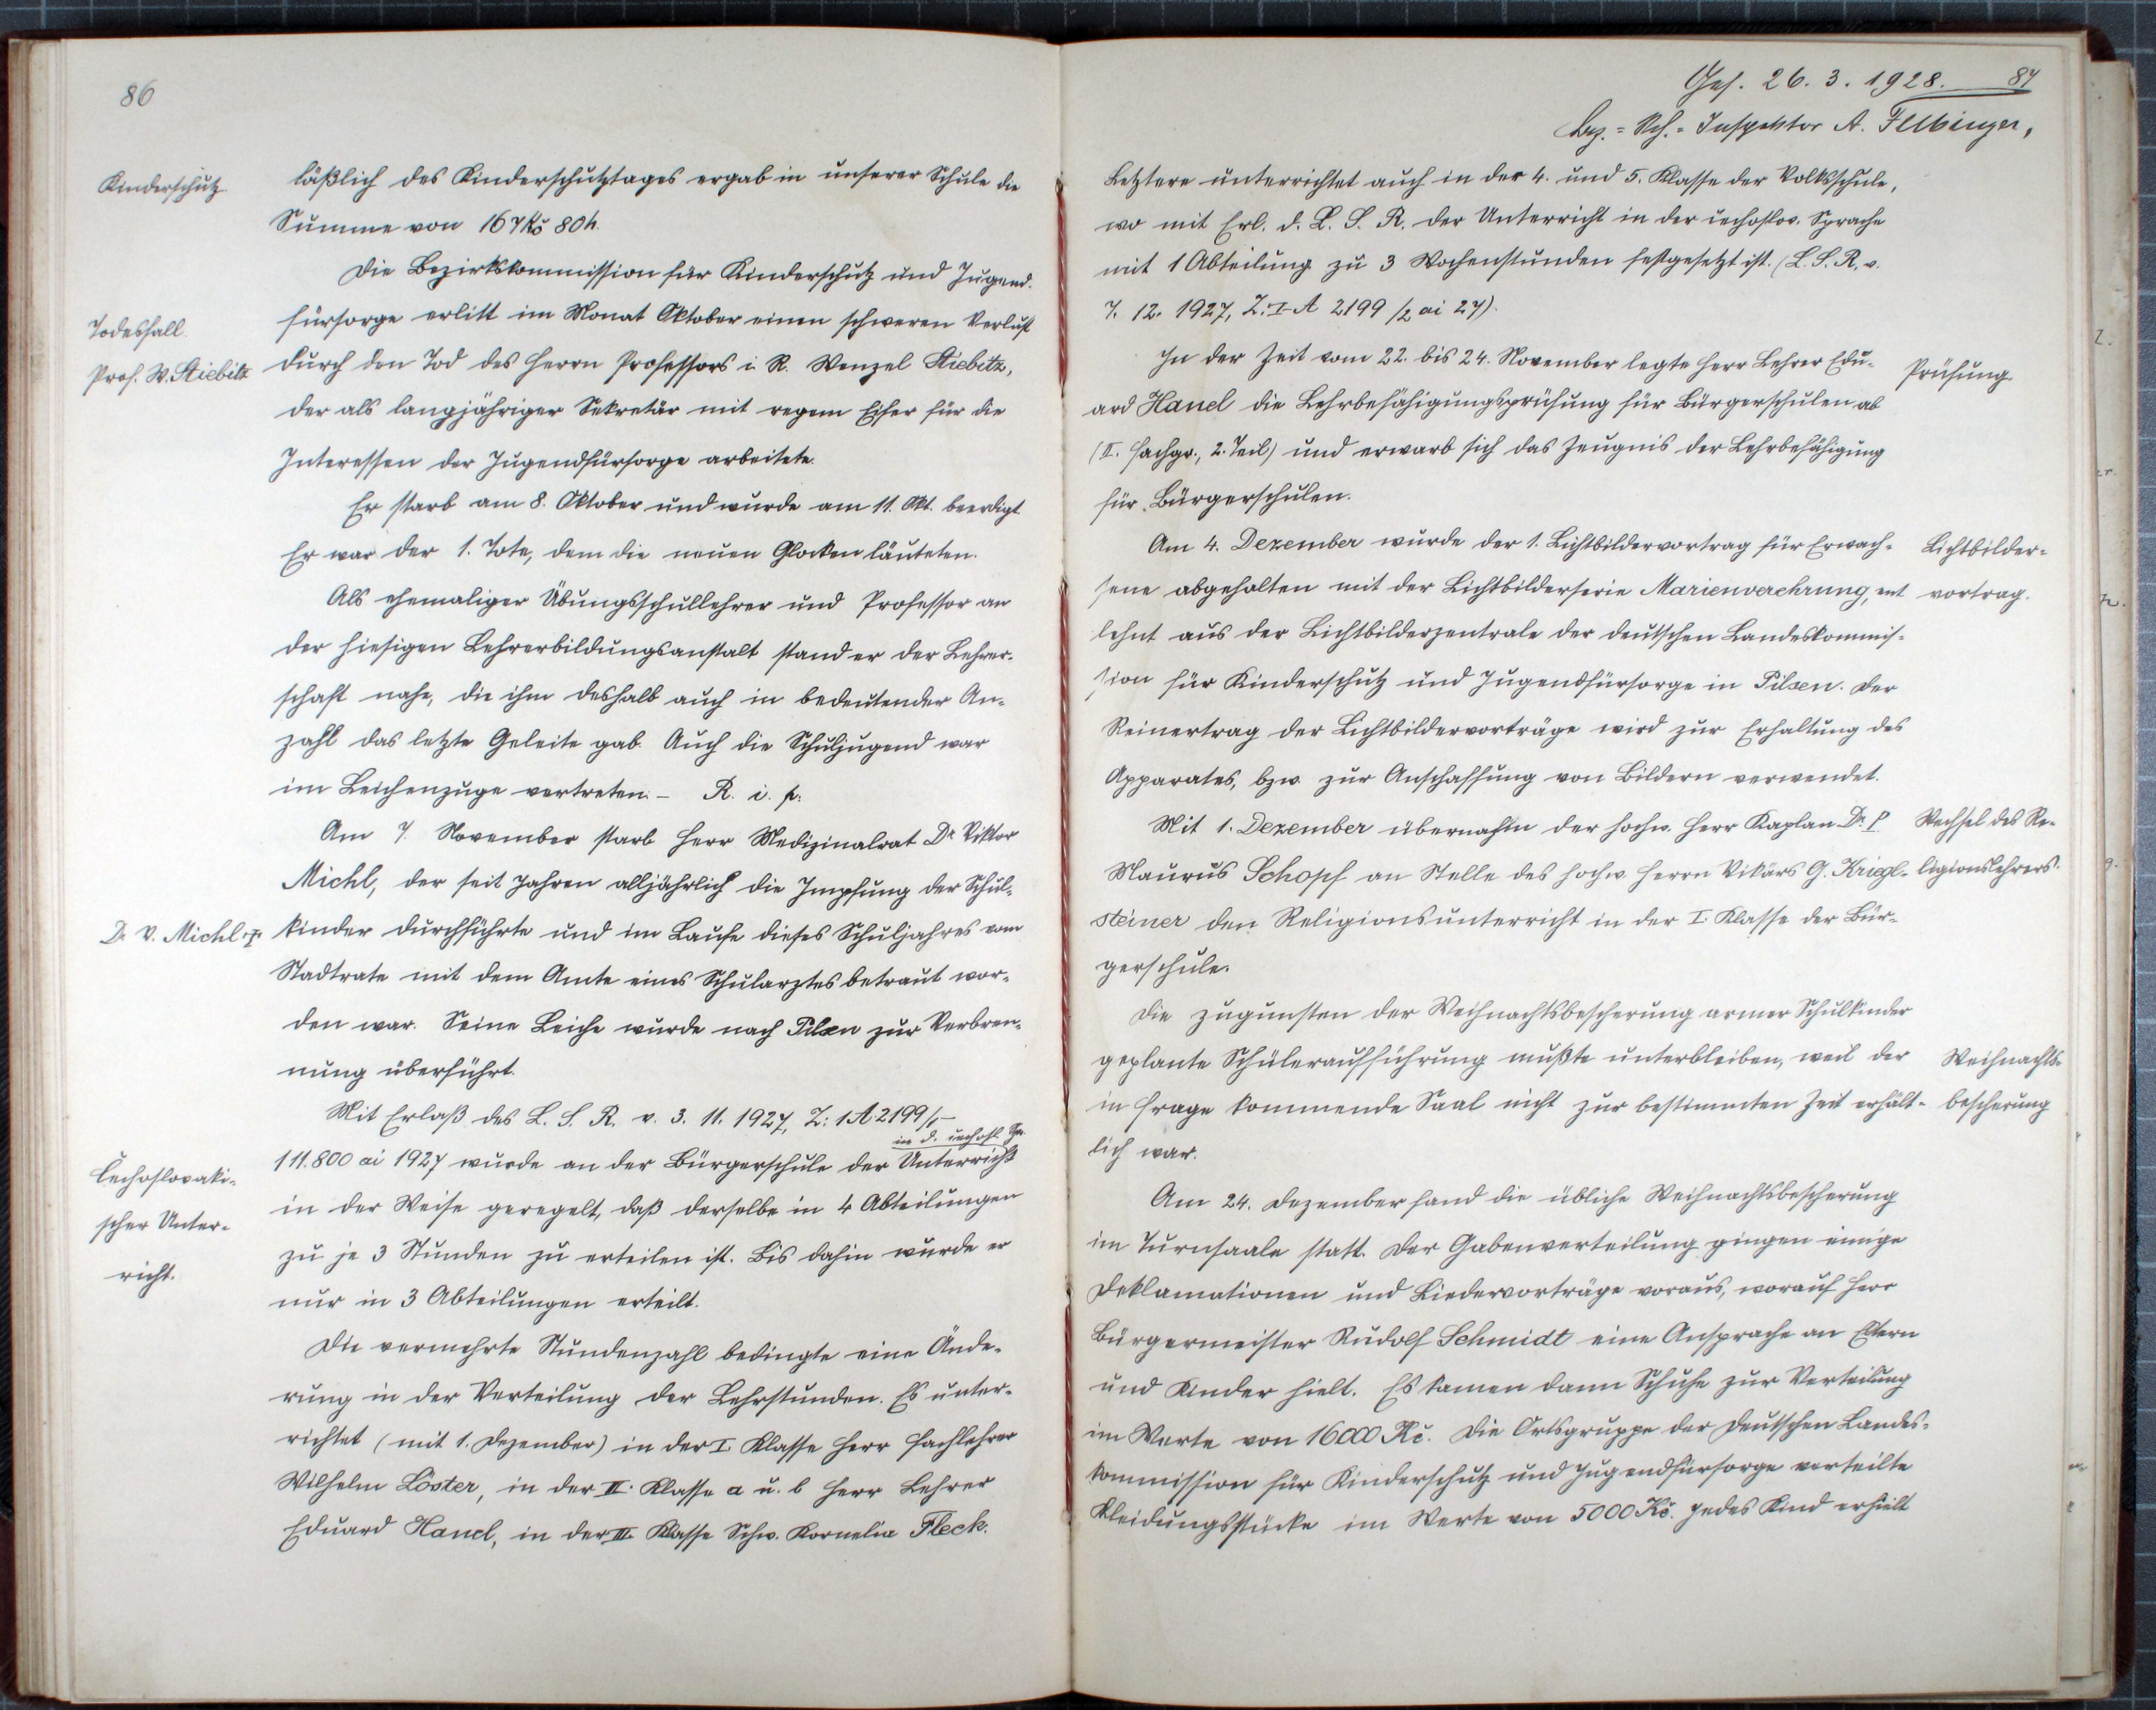 86
Kinderschutz
läßlich des Kinderschutztages ergab in unserer Schule die
Summe von 167 Kč 80 h.
Die Bezirkskommission für Kinderschutz und Jugend-
Todesfall.
fürsorge erlitt im Monat Oktober einen schweren Verlust
Prof. W. Stiebitz
durch den Tod des Herrn Professors i. R. Wenzel Stiebitz,
der als langjähriger Sekretär mit regem Eifer für die
Interessen der Jugendfürsorge arbeitete.
Er starb am 8. Oktober und wurde am 11. Okt. beerdigt
Er war der 1. Tote, dem die neuen Glocken läuteten.
Als ehemaliger Übungsschullehrer und Professor an
der hiesigen Lehrerbildungsanstalt stand er der Lehrer-
schaft nahe, die ihm deshalb auch in bedeutender An-
zahl das letzte Geleite gab. Auch die Schuljugend war
im Leichenzuge vertreten. – R. i. p.
Am 7. November starb Herr Medizinalrat Dr. Viktor
Michl, der seit Jahren alljährlich die Impfung der Schul-
Dr. V. Michl †
kinder durchführte und im Laufe dieses Schuljahres vom
Stadtrate mit dem Amte eines Schularztes betraut wor-
den war. Seine Leiche wurde nach Pilsen zur Verbren-
nung überführt.
Mit Erlaß des L. S. R. v. 3. 11. 1927, Z: 1 A 2199/1–
in d. čechosl. Spr.
111.800 ai 1927 wurde an der Bürgerschule der Unterricht
Čechoslovaki-
scher Unter-
richt.
in der Weise geregelt, daß derselbe in 4 Abteilungen
zu je 3 Stunden zu erteilen ist. Bis dahin wurde er
nur in 3 Abteilungen erteilt.
Die vermehrte Stundenzahl bedingte eine Ände-
rung in der Verteilung der Lehrstunden. Es unter-
richtet (mit 1. Dezember) in der I. Klasse Herr Fachlehrer
Wilhelm Löster, in der II. Klasse a u. b Herr Lehrer
Eduard Hanel, in der III. Klasse Schw. Kornelia Fleck.
Ges. 26. 3. 1928. 87
Bez.-Sch.-Inspektor A. Felbinger,
Letztere unterrichtet auch in der 4. und 5. Klasse der Volksschule,
wo mit Erl. d. L. S. R. der Unterricht in der čechoslov. Sprache
mit 1 Abteilung zu 3 Wochenstunden festgesetzt ist. (L. S. R. v.
7. 12. 1927, Z. I-A 2199/2 ai 27).
In der Zeit vom 22. bis 24. November legte Herr Lehrer Edu-
Prüfung.
ard Hanel die Lehrbefähigungsprüfung für Bürgerschulen ab
(II. Fachgr., 2. Teil) und erwarb sich das Zeugnis der Lehrbefähigung
für Bürgerschulen.
Am 4. Dezember wurde der 1. Lichtbildervortrag für Erwach-
Lichtbilder-
vortrag.
sene abgehalten mit der Lichtbilderserie Marienverehrung, ent
lehnt aus der Lichtbilderzentrale der deutschen Landeskommis-
sion für Kinderschutz und Jugendfürsorge in Pilsen. Der
Reinertrag der Lichtbildervorträge wird zur Erhaltung des
Apparates, bzw. zur Anschaffung von Bildern verwendet.
Mit 1. Dezember übernahm der hochw. Herr Kaplan Dr. P.
Wechsel des Re-
ligionslehrers.
Maurus Schopf an Stelle des hochw. Herrn Vikärs G. Kriegl-
steiner den Religionsunterricht in der I. Klasse der Bür-
gerschule.
Die zugunsten der Weihnachtsbescherung armer Schulkinder
geplante Schüleraufführung mußte unterbleiben, weil der
Weihnachts-
bescherung
in Frage kommende Saal nicht zur bestimmten Zeit erhält-
lich war.
Am 24. Dezember fand die übliche Weihnachtsbescherung
im Turnsaale statt. Der Gabenverteilung gingen einige
Deklamationen und Liedervorträge voraus, worauf Herr
Bürgermeister Rudolf Schmidt eine Ansprache an Eltern
und Kinder hielt. Es kamen dann Schuhe zur Verteilung
im Werte von 16000 Kč. Die Ortsgruppe der Deutschen Landes-
kommission für Kinderschutz und Jugendfürsorge verteilte
Kleidungsstücke im Werte von 5000 Kč. Jedes Kind erhielt